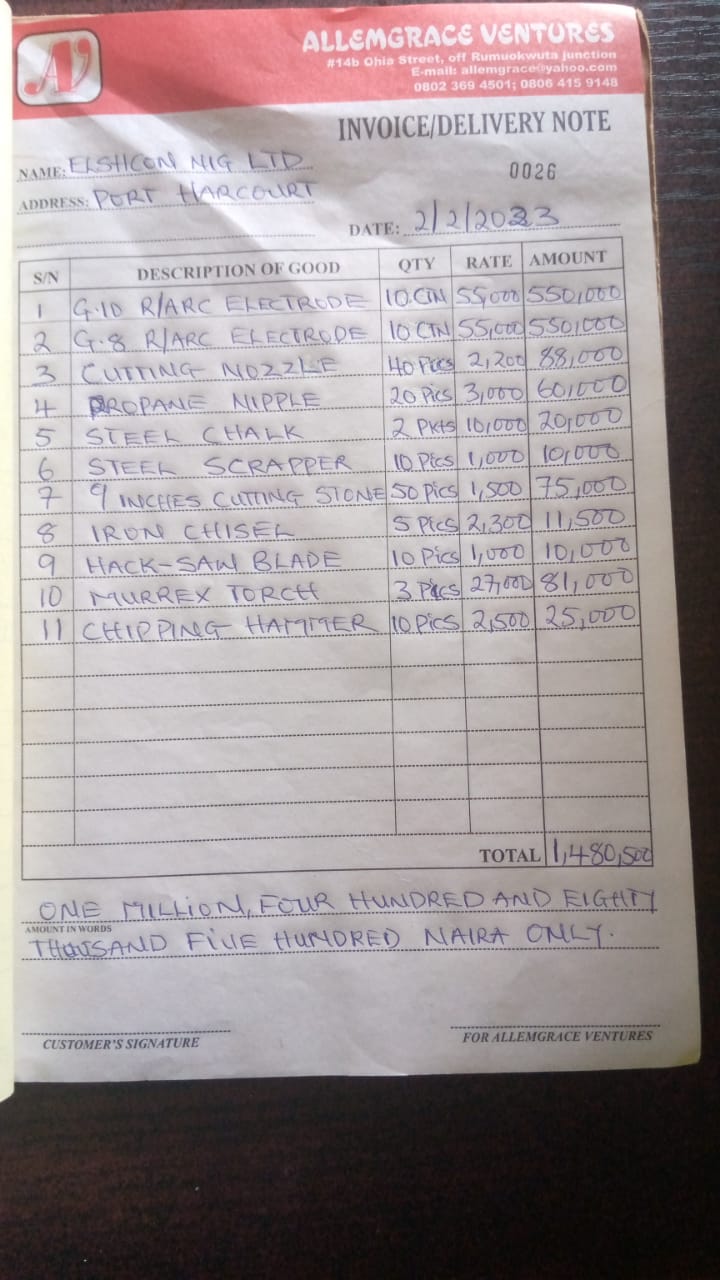 A'
ALLEMGRACE VENTURES
#14b Ohia Street, off Rumuokwuta junction
E-mail: allemgrace@yahoo.com
0802 369 4501; 0806 415 9148
INVOICE/DELIVERY NOTE
NAME: ELSHCON NIG LTD
0026
ADDRESS: PORT HARCOURT
DATE: 2/2/2023
S/N DESCRIPTION OF GOOD QTY RATE AMOUNT
1 G.10 R/ARC ELECTRODE 10 CTN 55,000 550,000
2 G.8 R/ARC ELECTRODE 10 CTN 55,000 550,000
3 CUTTING NOZZLE 40 Pics 2,200 88,000
4 PROPANE NIPPLE 20 Pics 3,000 60,000
5 STEEL CHALK 2 Pkts 10,000 20,000
6 STEEL SCRAPPER 10 Pics 1,000 10,000
7 9 INCHES CUTTING STONE 50 Pics 1,500 75,000
8 IRON CHISEL 5 Pics 2,300 11,500
9 HACK-SAW BLADE 10 Pics 1,000 10,000
10 MURREX TORCH 3 Pics 27,000 81,000
11 CHIPPING HAMMER 10 Pics 2,500 25,000
TOTAL 1,480,500
ONE MILLION, FOUR HUNDRED AND EIGHTY
AMOUNT IN WORDS
THOUSAND FIVE HUNDRED NAIRA ONLY.
CUSTOMER'S SIGNATURE FOR ALLEMGRACE VENTURES